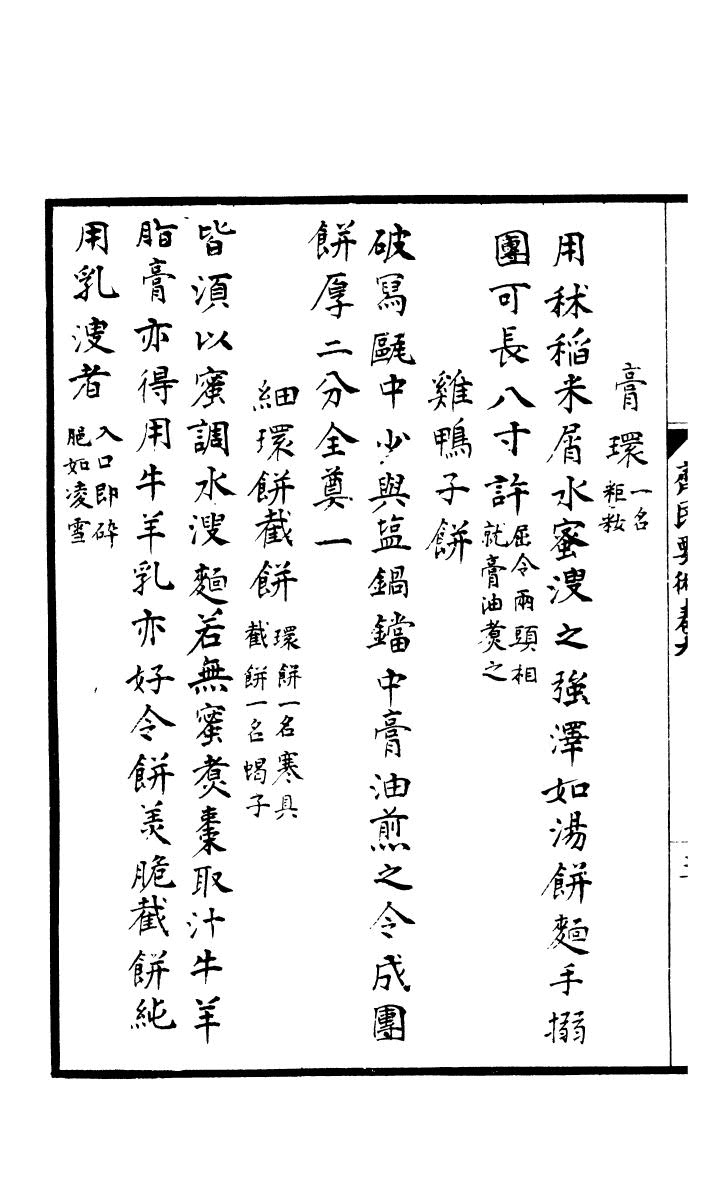 膏環一名粔籹
用秫稻米屑水蜜溲之強澤如湯餅麵手搦
團可長八寸許屈令兩頭相就膏油煑之
雞鴨子餅
破寫甌中少與塩鍋鐺中膏油煎之令成團
餅厚二分全奠一
細環餅截餅環餅一名寒具截餅一名蝎子
皆須以蜜調水溲麵若無蜜煑棗取汁牛羊
脂膏亦得用牛羊乳亦好令餅美脆截餅純
用乳溲者入口即碎脃如凌雪
齊民要術卷九